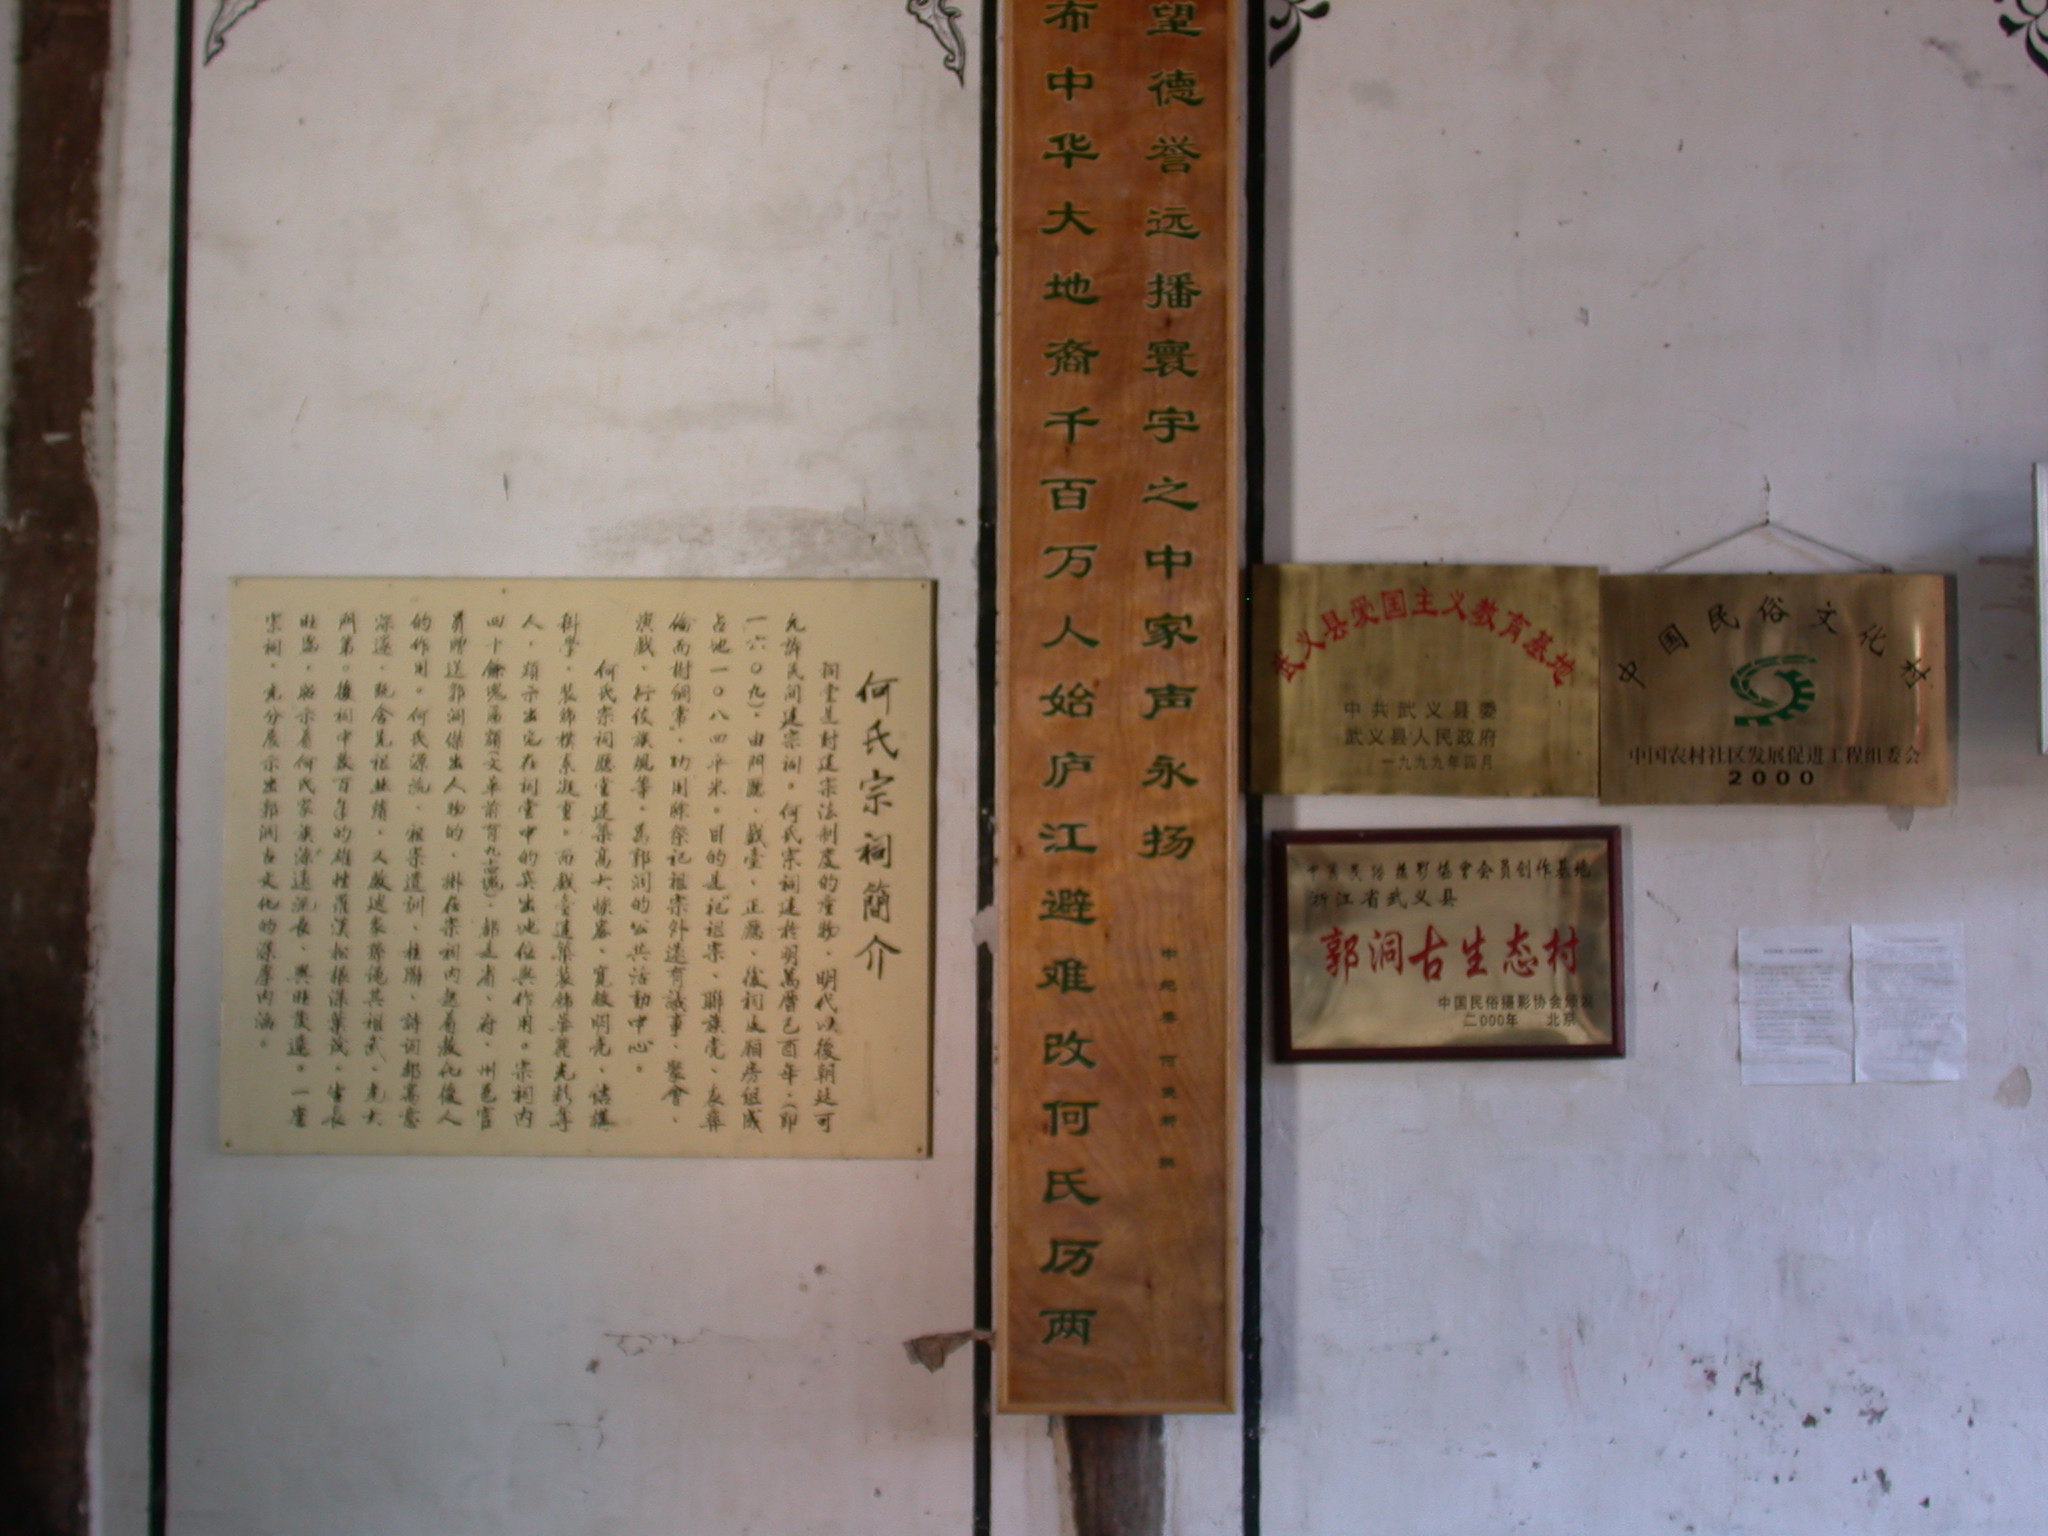 何氏宗祠簡介
祠堂是封建宗法制度的產物，明代以後朝廷可
允許民间建宗祠。何氏宗祠建於明萬曆己酉年，（即
一六〇九），由門廳、戲臺、正廳、後祠及厢房組成
占地一〇八四平米。目的是“祀祖宗、聯族党、表彝
倫而樹綱常”，功用除祭祀祖宗外還有議事、聚會、
演戲，行伩族風等。爲郭洞的公共活動中心。
何氏宗祠廳堂建築高大恢宏，寬敞明亮，
科學，装飾樸素凝重。而戲臺建築装飾華麗光彩等
人，顕示出它在祠堂中的突出地位與作用。宗祠内
四十餘塊匾額（文革前有九十四塊），都是省、府、州邑官
員贈送郭洞傑出人物的，掛在宗祠内起着教化後人
的作用。何氏源流、祖宗遺訓、柱聯、詩词都寓意
深邃，既含先祖业绩，又啟迪家孫繩其祖武，光大
門第。後祠中數百年的雄檀羅漢松根深葉茂，雷長
旺盛，昭示着何氏家族源遠流長、興旺發達。一座
宗祠，充分展示出郭洞古文化的深厚内涵。
望德誉远播寰宇之中家声永扬
布中华大地裔千百万人始庐江避难改何氏历两
武义县爱国主义教育基地
中共武义县委
武义县人民政府
一九九九年四月
中国民俗文化村
中国农村社区发展促进工程组委会
2000
中國民俗攝影協會会员创作基地
浙江省武义县
郭洞古生态村
中国民俗摄影协会颁发
二000年 北京